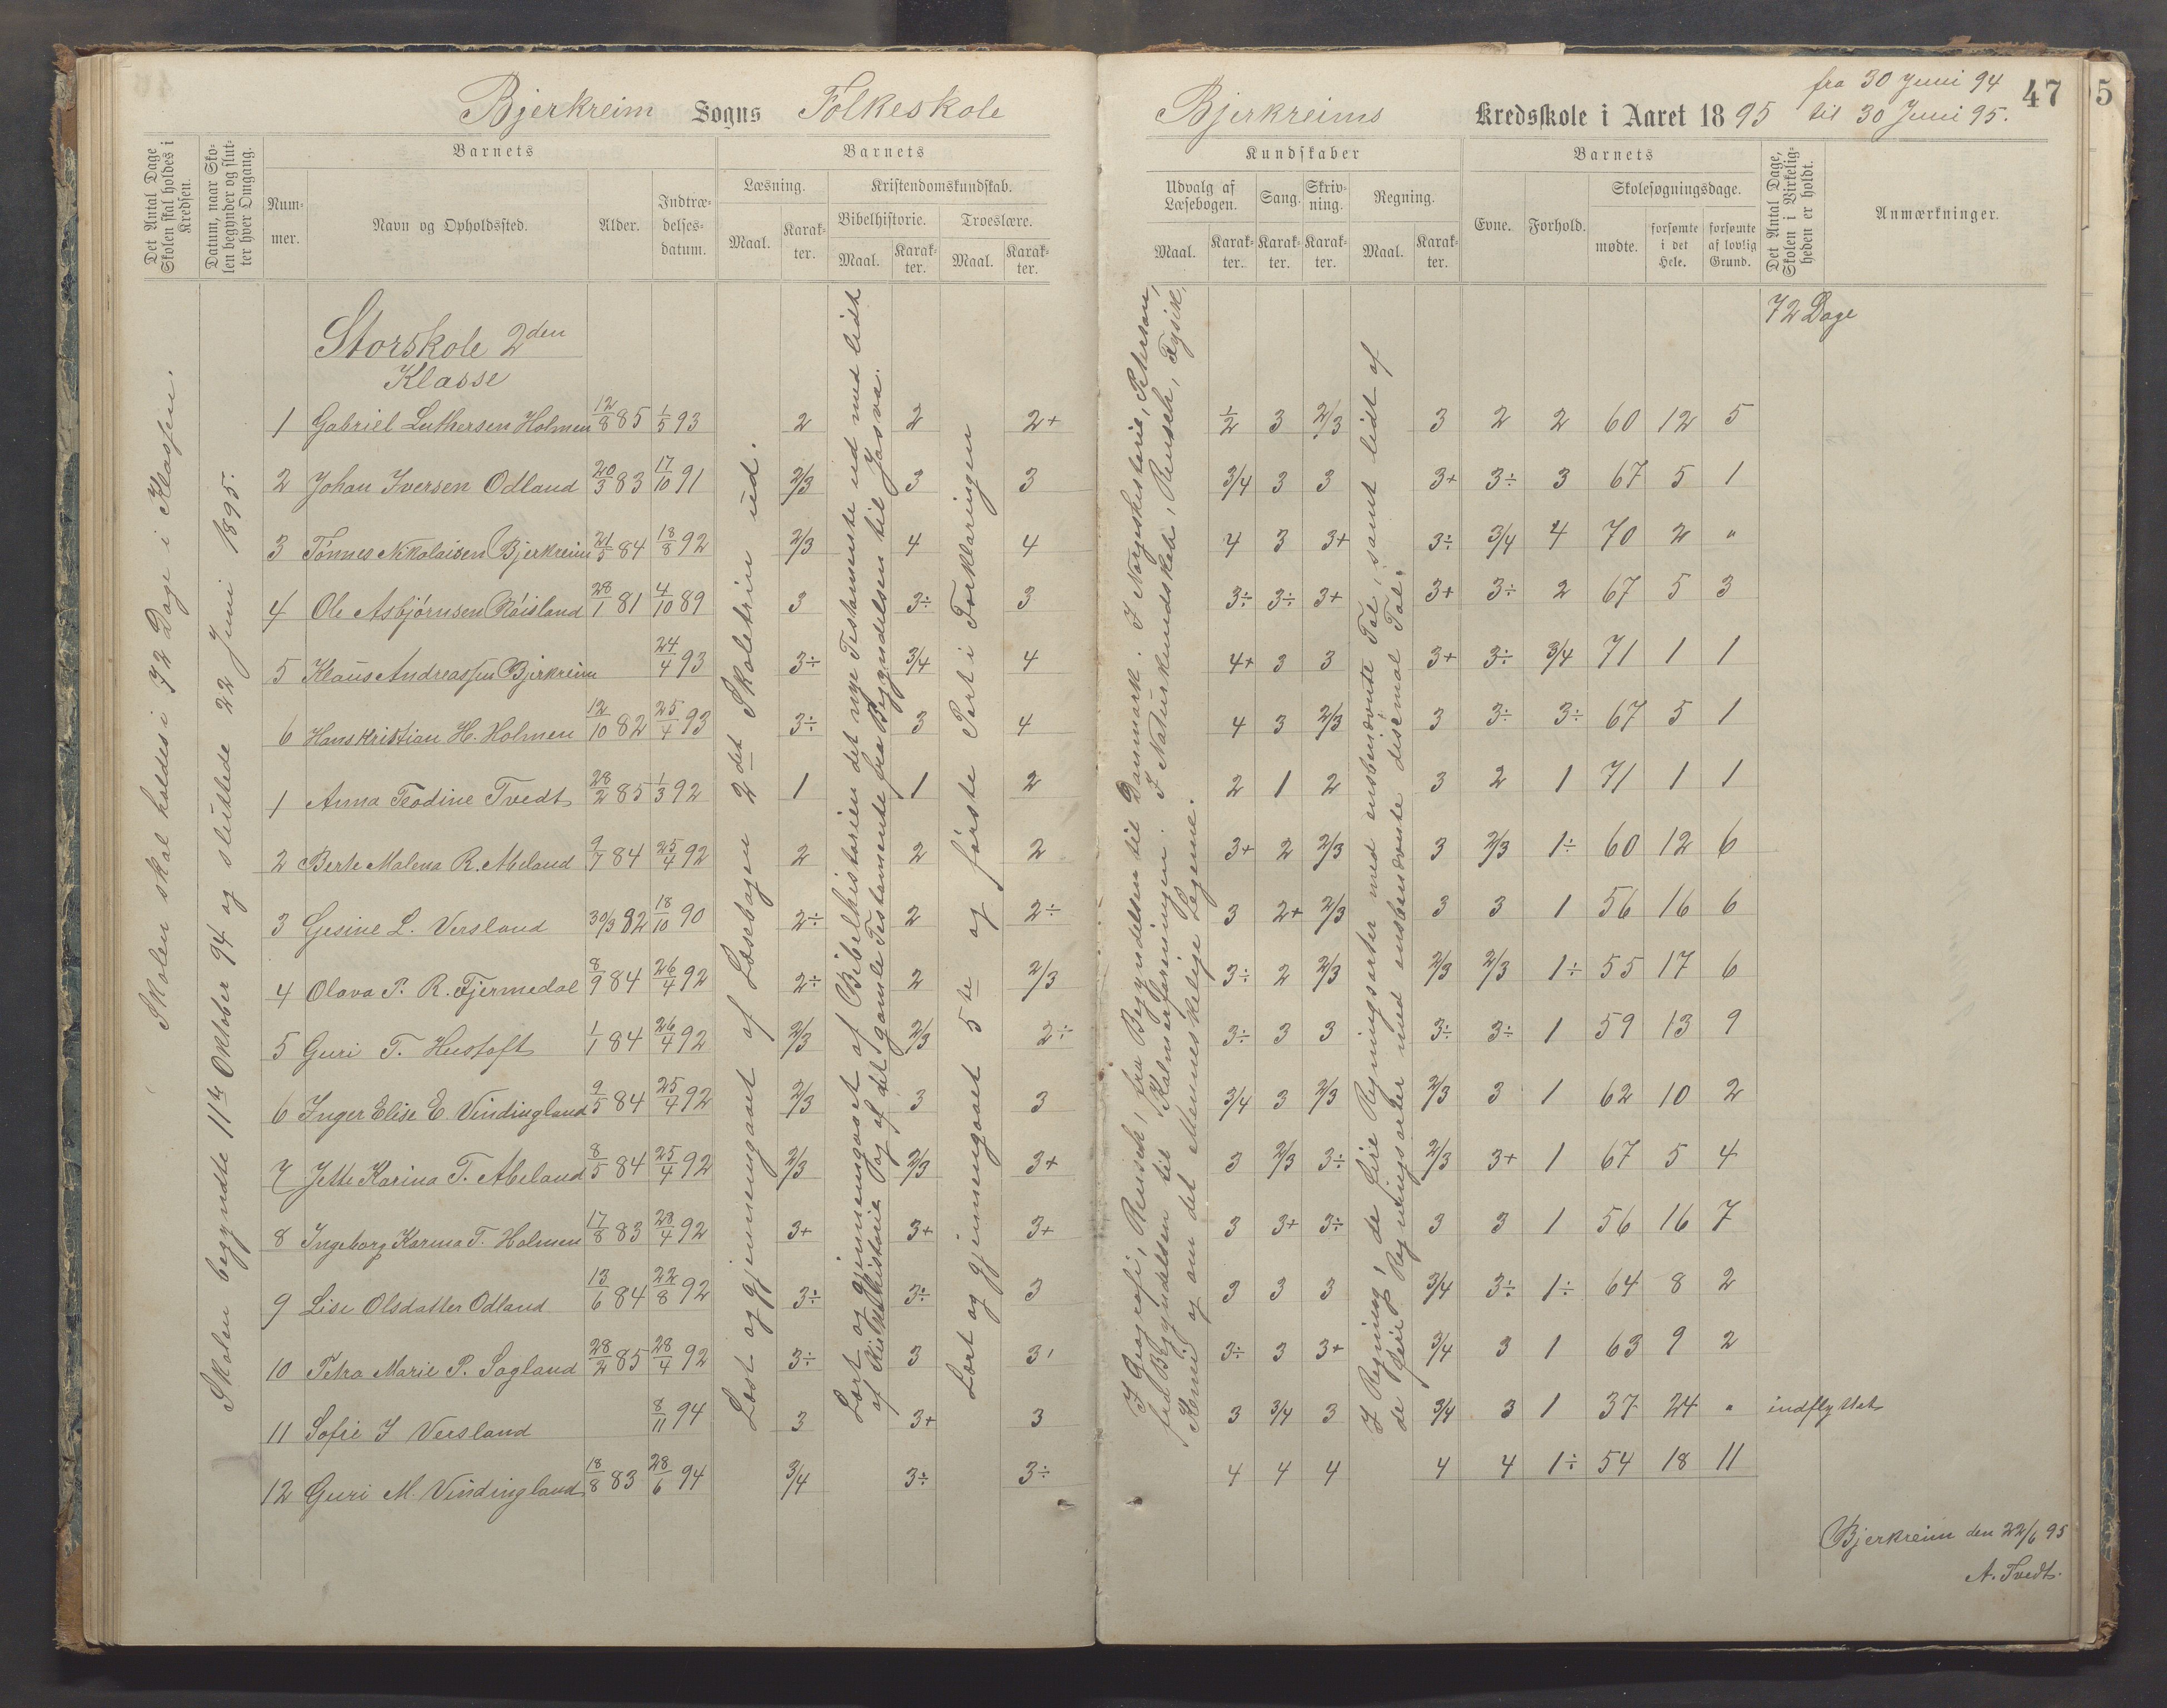 Bjerkreim Sogns Folkeskole
Det Antal Dage Skolen skal holdes i Kredsen.
Datum, naar Skolen begynder og slutter hver Omgang.
Barnets
Nummer.
Navn og Opholdssted.
Alder.
Indtrædelsesdatum.
Barnets
Læsning.
Maal.
Karakter.
Kristendomskundskab.
Bibelhistorie.
Maal.
Karakter.
Troeslære.
Maal.
Karakter.
Skolen skal holdes i 72 Dage i Klassen.
Skolen begyndte 11te Oktober 94 og sluttede 22 Juni 1895.
Læst og gjennemgaaet af Læsebogen 2det Skoletrin ud.
Lært og gjennemgaaet af Bibelhistorien det nye Testamente ud med lidt
af Kirkehistorie og af det gamle Testamente fra Begyndelsen til Josva.
Lært og gjennemgaaet 5te og første Part i Forklaringen
Storskole 2den
Klasse
1 Gabriel Luthersen Holmen 12/8 85 1/5 93 2 2 2+
2 Johan Iversen Odland 20/3 83 17/10 91 2/3 3 3
3 Tönnes Nikolaisen Bjerkreim 21/5 84 18/8 92 2/3 4 4
4 Ole Asbjørnsen Røisland 28/1 81 4/10 89 3 3÷ 3
5 Klaus Andreassen Bjerkreim 24/4 93 3÷ 3/4 4
6 Hans Kristian H. Holmen 12/10 82 25/4 93 3÷ 3 4
1 Anna Teodine Tvedt 28/2 85 1/3 92 1 1 2
2 Berte Malena R. Abeland 9/7 84 25/4 92 2 2 2
3 Gesine L. Versland 30/3 82 18/10 90 2÷ 2 2÷
4 Olava P. R. Fjermedal 8/9 84 26/4 92 2÷ 2 2/3
5 Guri T. Hustoft 1/1 84 26/4 92 2/3 2/3 2÷
6 Inger Elise E. Vindingland 9/5 84 25/4 92 2/3 3 3
7 Jette Karina T. Abeland 8/5 84 25/4 92 2/3 2/3 3+
8 Ingeborg Karina T. Holmen 17/8 83 28/4 92 3+ 3+ 3+
9 Lise Olsdatter Odland 13/6 84 22/8 92 3÷ 3÷ 3
10 Petra Marie P. Sagland 28/2 85 28/4 92 3÷ 3 3
11 Sofie I Versland 8/11 94 3 3+ 3
12 Guri M. Vindingland 18/8 83 28/6 94 3/4 3÷ 3÷
Bjerkreims Kredsskole i Aaret 1895
fra 30 Juni 94
til 30 Juni 95.
47
5
Kundskaber
Udvalg af Læsebogen.
Maal.
Karakter.
Sang.
Karakter.
Skrivning.
Karakter.
Regning.
Maal.
Karakter.
Barnets
Evne.
Forhold.
Skolesøgningsdage.
mødte.
forsømte i det Hele.
forsømte af lovlig Grund.
Det Antal Dage, Skolen i Virkeligheden er holdt.
Anmærkninger.
I Geografi, Reusch, fra Begyndelsen til Danmark. I Norgeshistorie, Petersen,
fra Begyndelsen til Kalmarforeningen. I Naturkundskab, Reusch, Fysik,
Kemi og om det Menneskelige Legeme.
I Regning, de fire Regningsarter med ensbenævnte Tal, samt lidt af
de fire Regningsarter med ensbenævnte desimal Tal.
72 Dage
1/2 3 2/3 3 2 2 60 12 5
3/4 3 3 3+ 3÷ 3 67 5 1
4 3 3+ 3÷ 3/4 4 70 2 "
3÷ 3÷ 3+ 3+ 3÷ 2 67 5 3
4+ 3 3 3+ 3÷ 3/4 71 1 1
4 3 2/3 3 3÷ 3÷ 67 5 1
2 1 2 3 2 1 71 1 1
3+ 2 2/3 3 2/3 1÷ 60 12 6
3 2+ 2/3 3 3 1 56 16 6
3÷ 2 2/3 2/3 2/3 1÷ 55 17 6
3÷ 3 3 3÷ 3÷ 1 59 13 9
3/4 3 2/3 2/3 3 1 62 10 2
3 2/3 3÷ 2/3 3+ 1 67 5 4
3 3+ 3÷ 3 3 1 56 16 7
3 3 3 3/4 3÷ 1÷ 64 8 2
3÷ 3 3+ 3/4 3 1 63 9 2
3 3/4 3 3/4 3 1 37 24 " indflyttet
4 4 4 4 4 1÷ 54 18 11
Bjerkreim den 22/6 95
A. Tvedt.